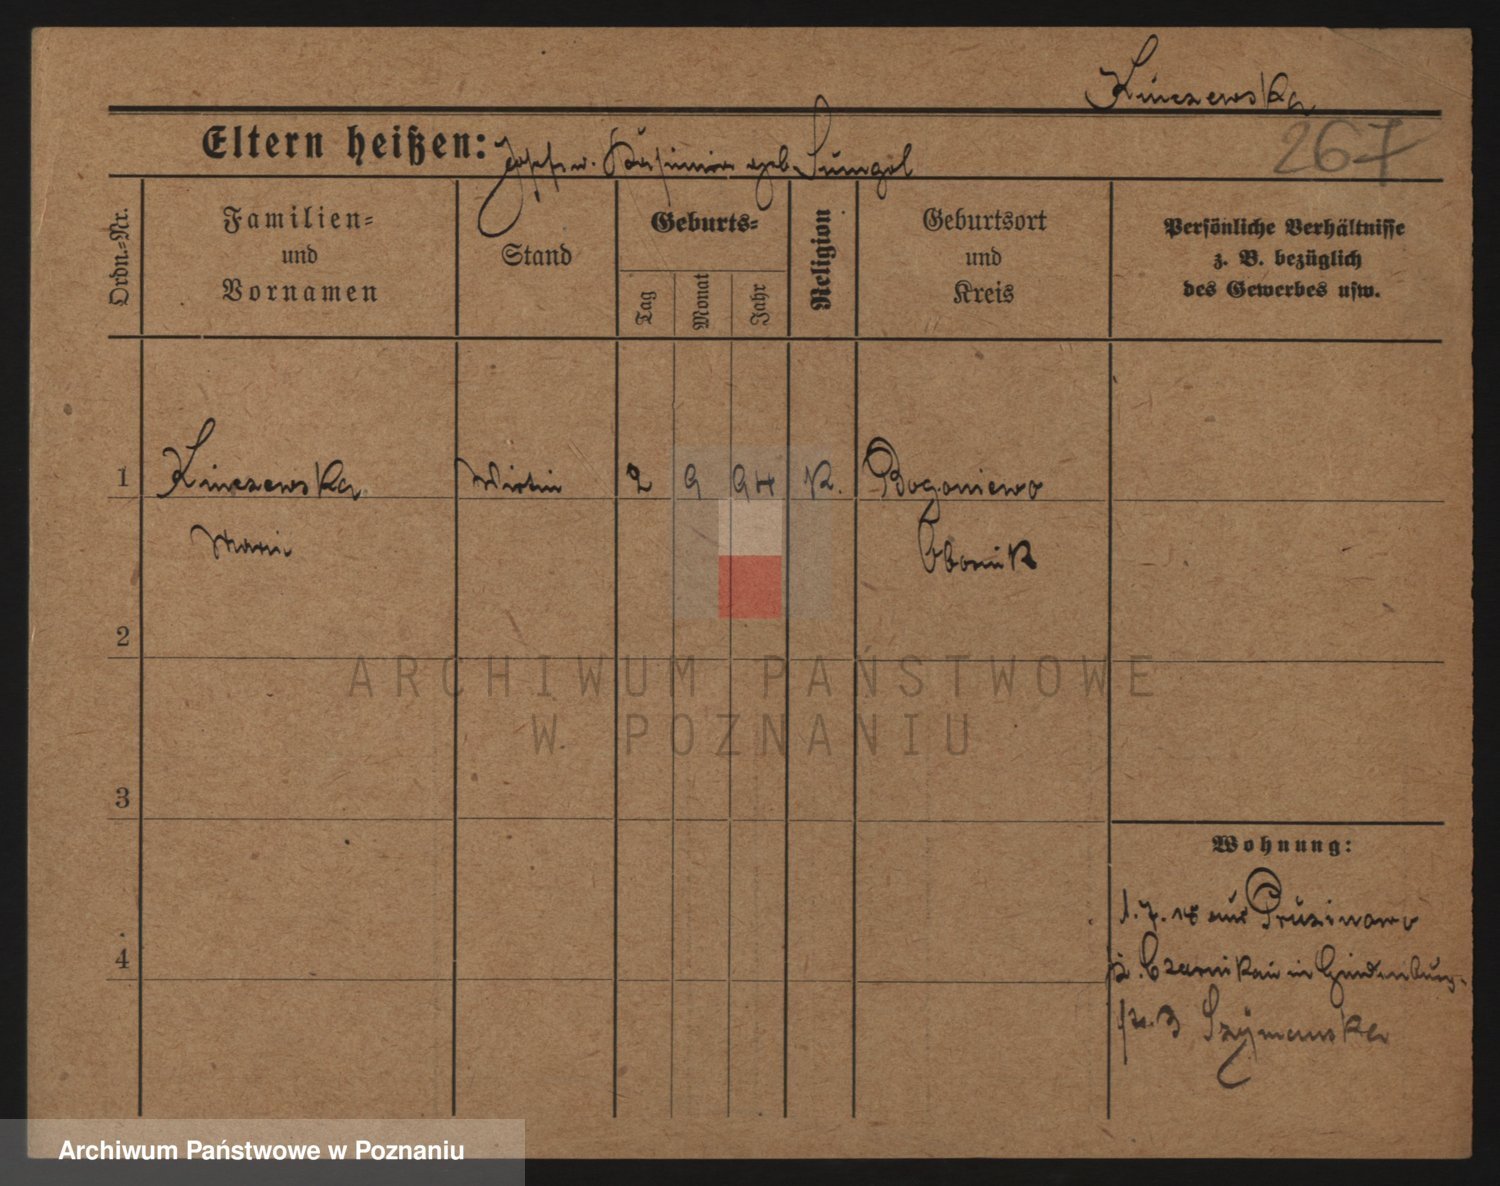 Kinczewska
267
Eltern heißen: Josef u. Kasimira geb. Sumgol
Ordn.=Nr.
Familien=
und
Vornamen
Stand
Geburts=
Tag
Monat
Jahr
Religion
Geburtsort
und
Kreis
Persönliche Verhältnisse
z. B. bezüglich
des Gewerbes usw.
1 Kinczewska Wirtin 2 9 94 K. Boguniewo
Marie Obornik
2
3
4
Wohnung:
1.7.18 aus Pruzinowo
Czarnikau in Hindenburg-
str. 3 Szymanska
ARCHIWUM PAŃSTWOWE
W POZNANIU
Archiwum Państwowe w Poznaniu